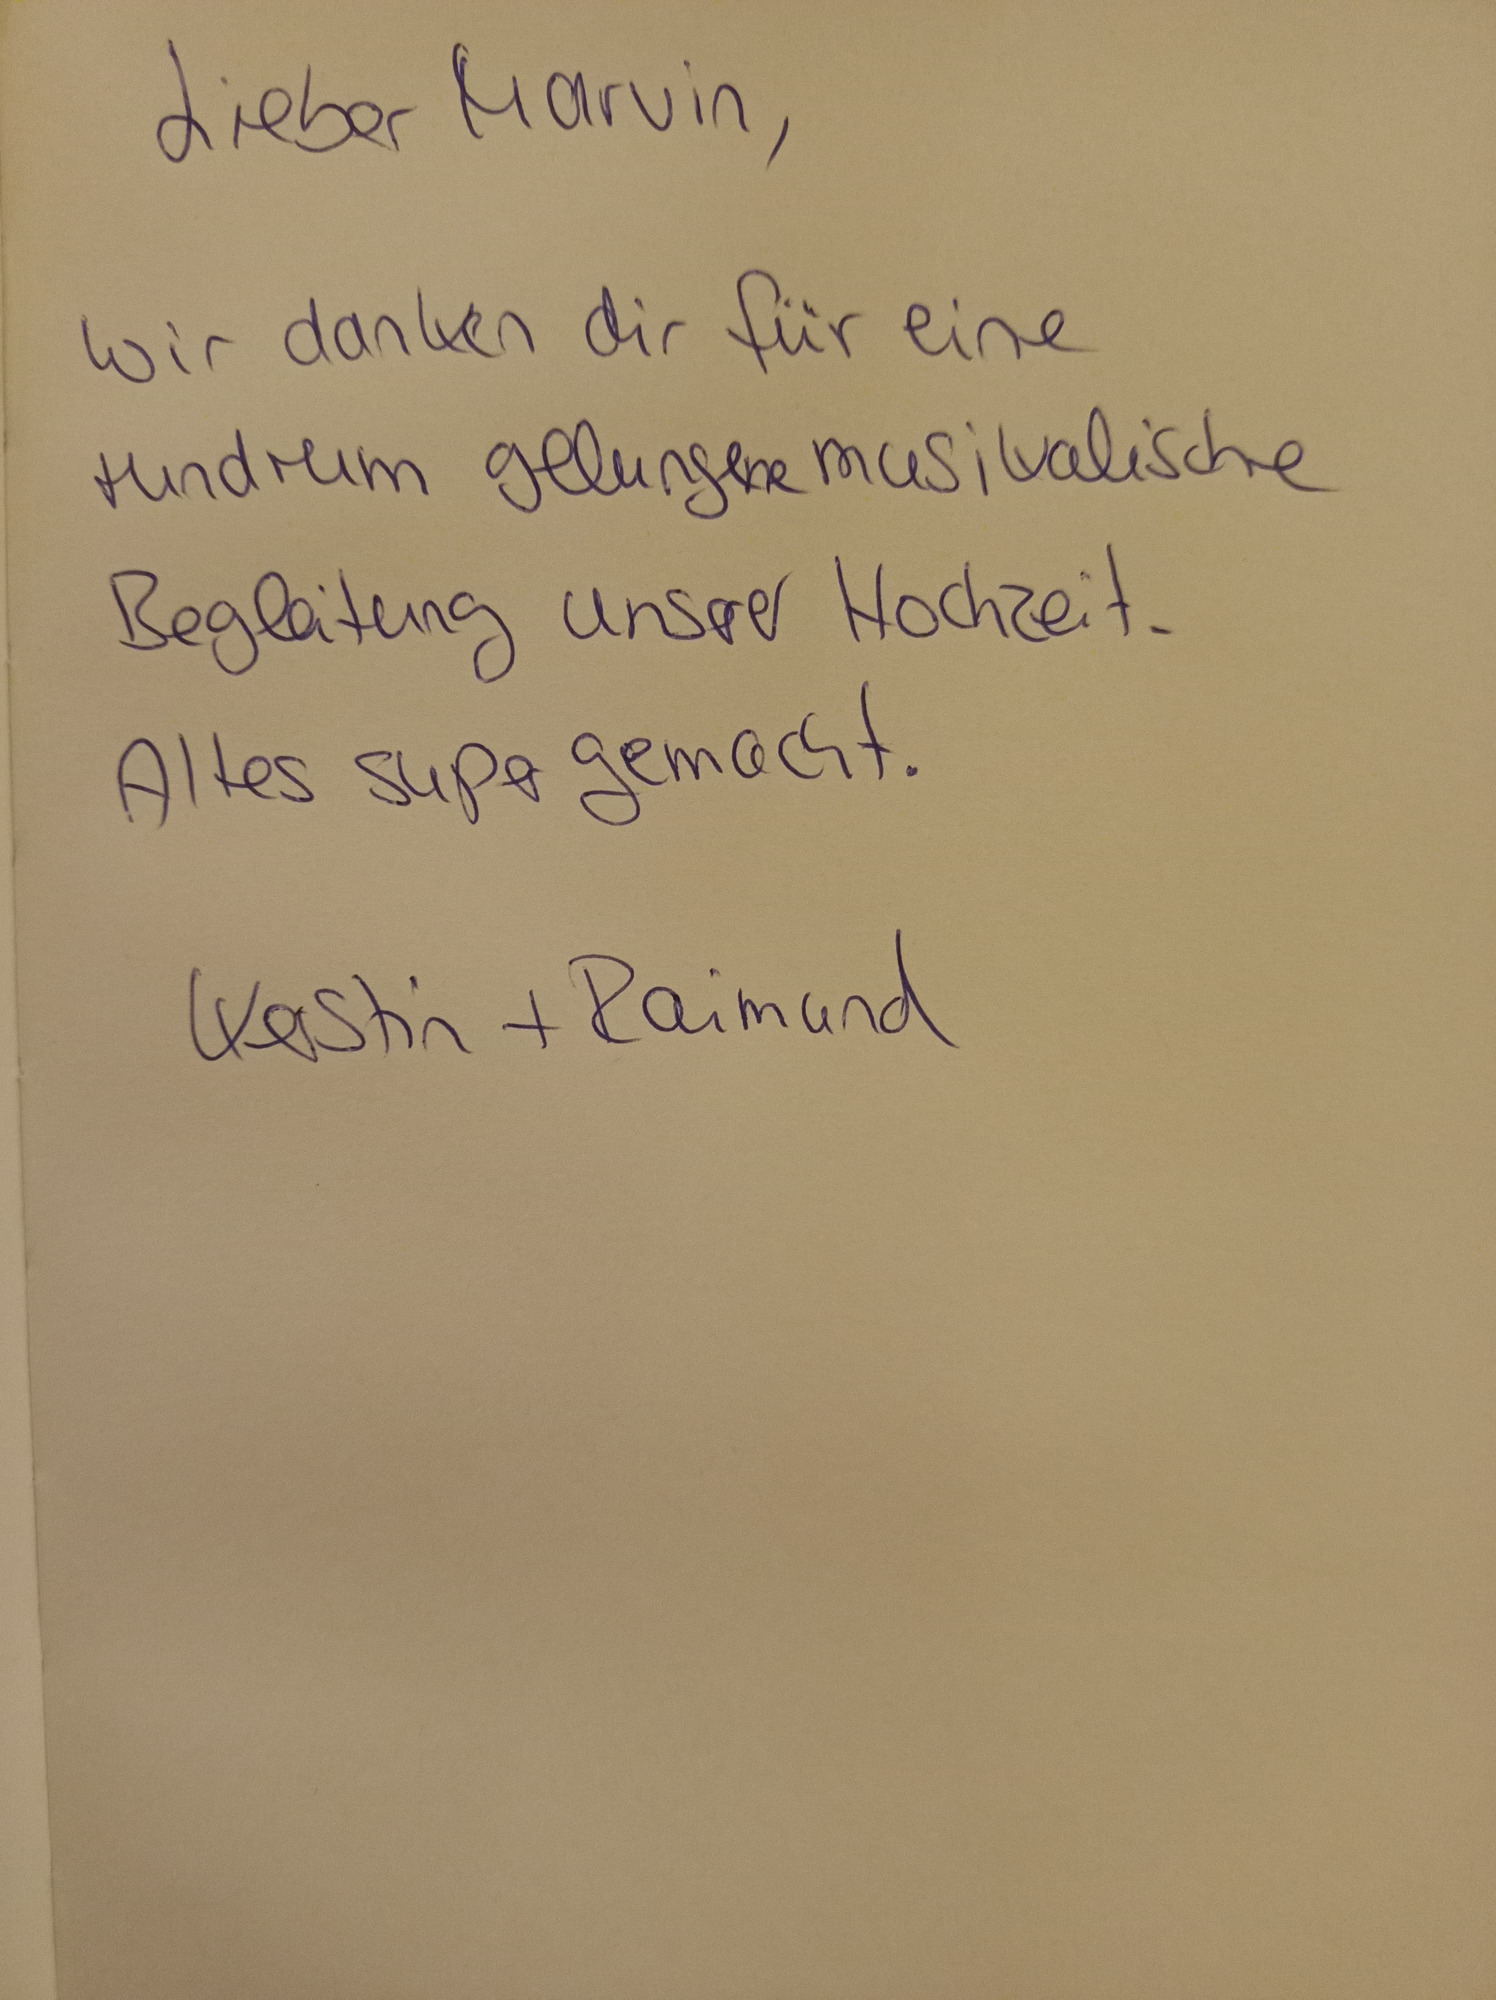 Lieber Marvin,
wir danken dir für eine
rundrum gelungene musikalische
Begleitung unserer Hochzeit.
Alles super gemacht.
Kerstin + Raimund